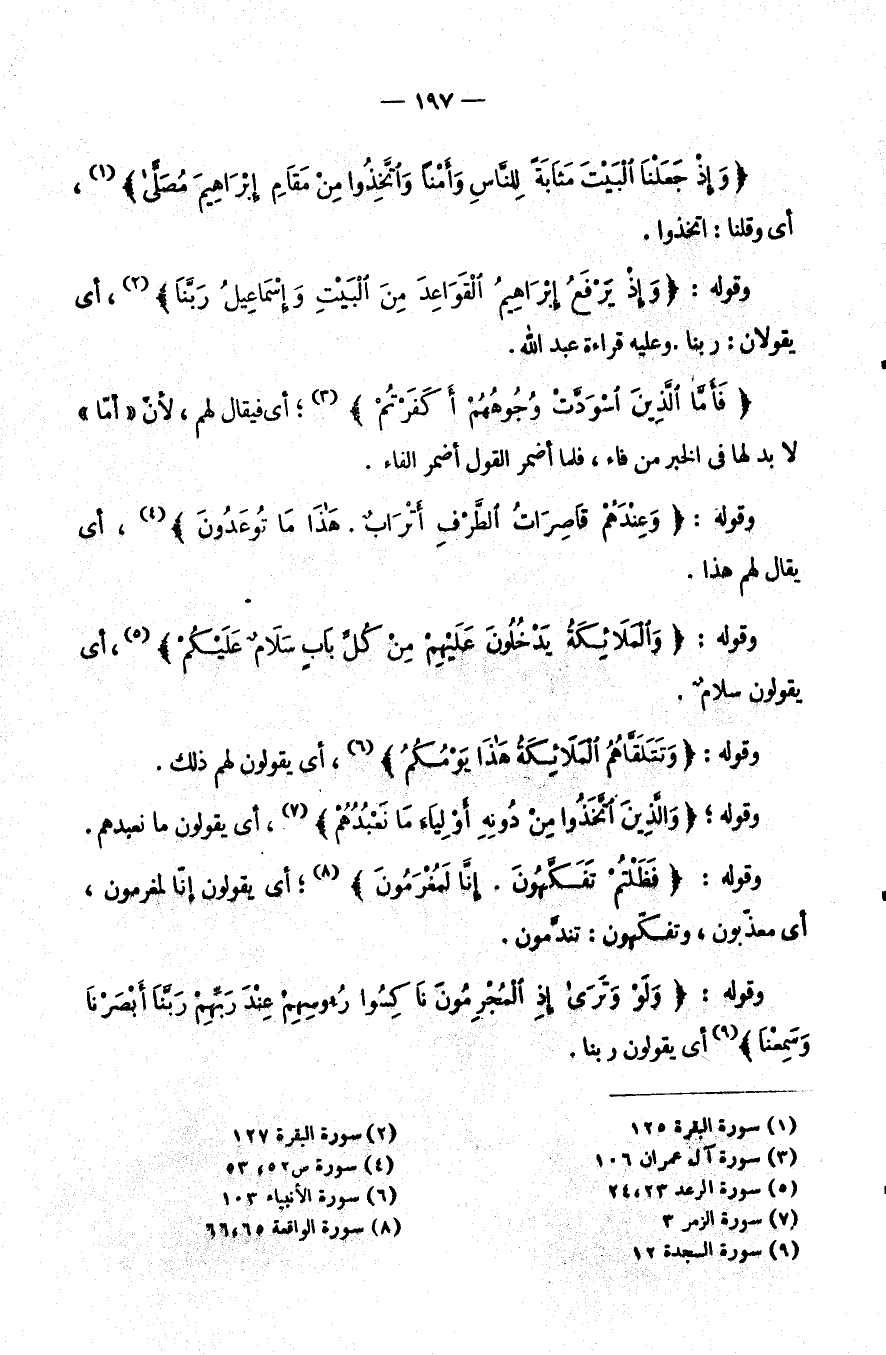 — ١٩٧ —
﴿ وَإِذْ جَعَلْنَا ٱلْبَيْتَ مَثَابَةً لِلنَّاسِ وَأَمْنًا وَٱتَّخِذُوا مِنْ مَقَامِ إِبْرَاهِيمَ مُصَلًّى ﴾(١) ،
أى وقلنا : اتخذوا .
وقوله : ﴿ وَإِذْ يَرْفَعُ إِبْرَاهِيمُ ٱلْقَوَاعِدَ مِنَ ٱلْبَيْتِ وَإِسْمَاعِيلُ رَبَّنَا ﴾(٢) ، أى
يقولان : ربنا . وعليه قراءة عبد الله .
﴿ فَأَمَّا ٱلَّذِينَ ٱسْوَدَّتْ وُجُوهُهُمْ أَكَفَرْتُمْ ﴾(٣) ؛ أى فيقال لهم ، لأنّ « أمّا »
لا بد لها فى الخبر من فاء ، فلما أضمر القول أضمر الفاء .
وقوله : ﴿ وَعِنْدَهُمْ قَاصِرَاتُ ٱلطَّرْفِ أَتْرَابٌ . هَٰذَا مَا تُوعَدُونَ ﴾(٤) ، أى
يقال لهم هذا .
وقوله : ﴿ وَٱلْمَلَائِكَةُ يَدْخُلُونَ عَلَيْهِمْ مِنْ كُلِّ بَابٍ سَلَامٌ عَلَيْكُمْ ﴾(٥) ، أى
يقولون سلامٌ .
وقوله : ﴿ وَتَتَلَقَّاهُمُ ٱلْمَلَائِكَةُ هَٰذَا يَوْمُكُمُ ﴾(٦) ، أى يقولون لهم ذلك .
وقوله ؛ ﴿ وَالَّذِينَ ٱتَّخَذُوا مِنْ دُونِهِ أَوْلِيَاءَ مَا نَعْبُدُهُمْ ﴾(٧) ، أى يقولون ما نعبدهم .
وقوله : ﴿ فَظَلْتُمْ تَفَكَّهُونَ . إِنَّا لَمُغْرَمُونَ ﴾(٨) ؛ أى يقولون إنّا لمغرمون ،
أى معذّبون ، وتفكّهون : تندَّمون .
وقوله : ﴿ وَلَوْ وَتَرَىٰ إِذِ ٱلْمُجْرِمُونَ نَاكِسُوا رُءوسِهِمْ عِنْدَ رَبِّهِمْ رَبَّنَا أَبْصَرْنَا
وَسَمِعْنَا ﴾(٩) أى يقولون ربنا .
(١) سورة البقرة ١٢٥
(٢) سورة البقرة ١٢٧
(٣) سورة آل عمران ١٠٦
(٤) سورة ص ٥٢، ٥٣
(٥) سورة الرعد ٢٣، ٢٤
(٦) سورة الأنبياء ١٠٣
(٧) سورة الزمر ٣
(٨) سورة الواقعة ٦٥، ٦٦
(٩) سورة السجدة ١٢